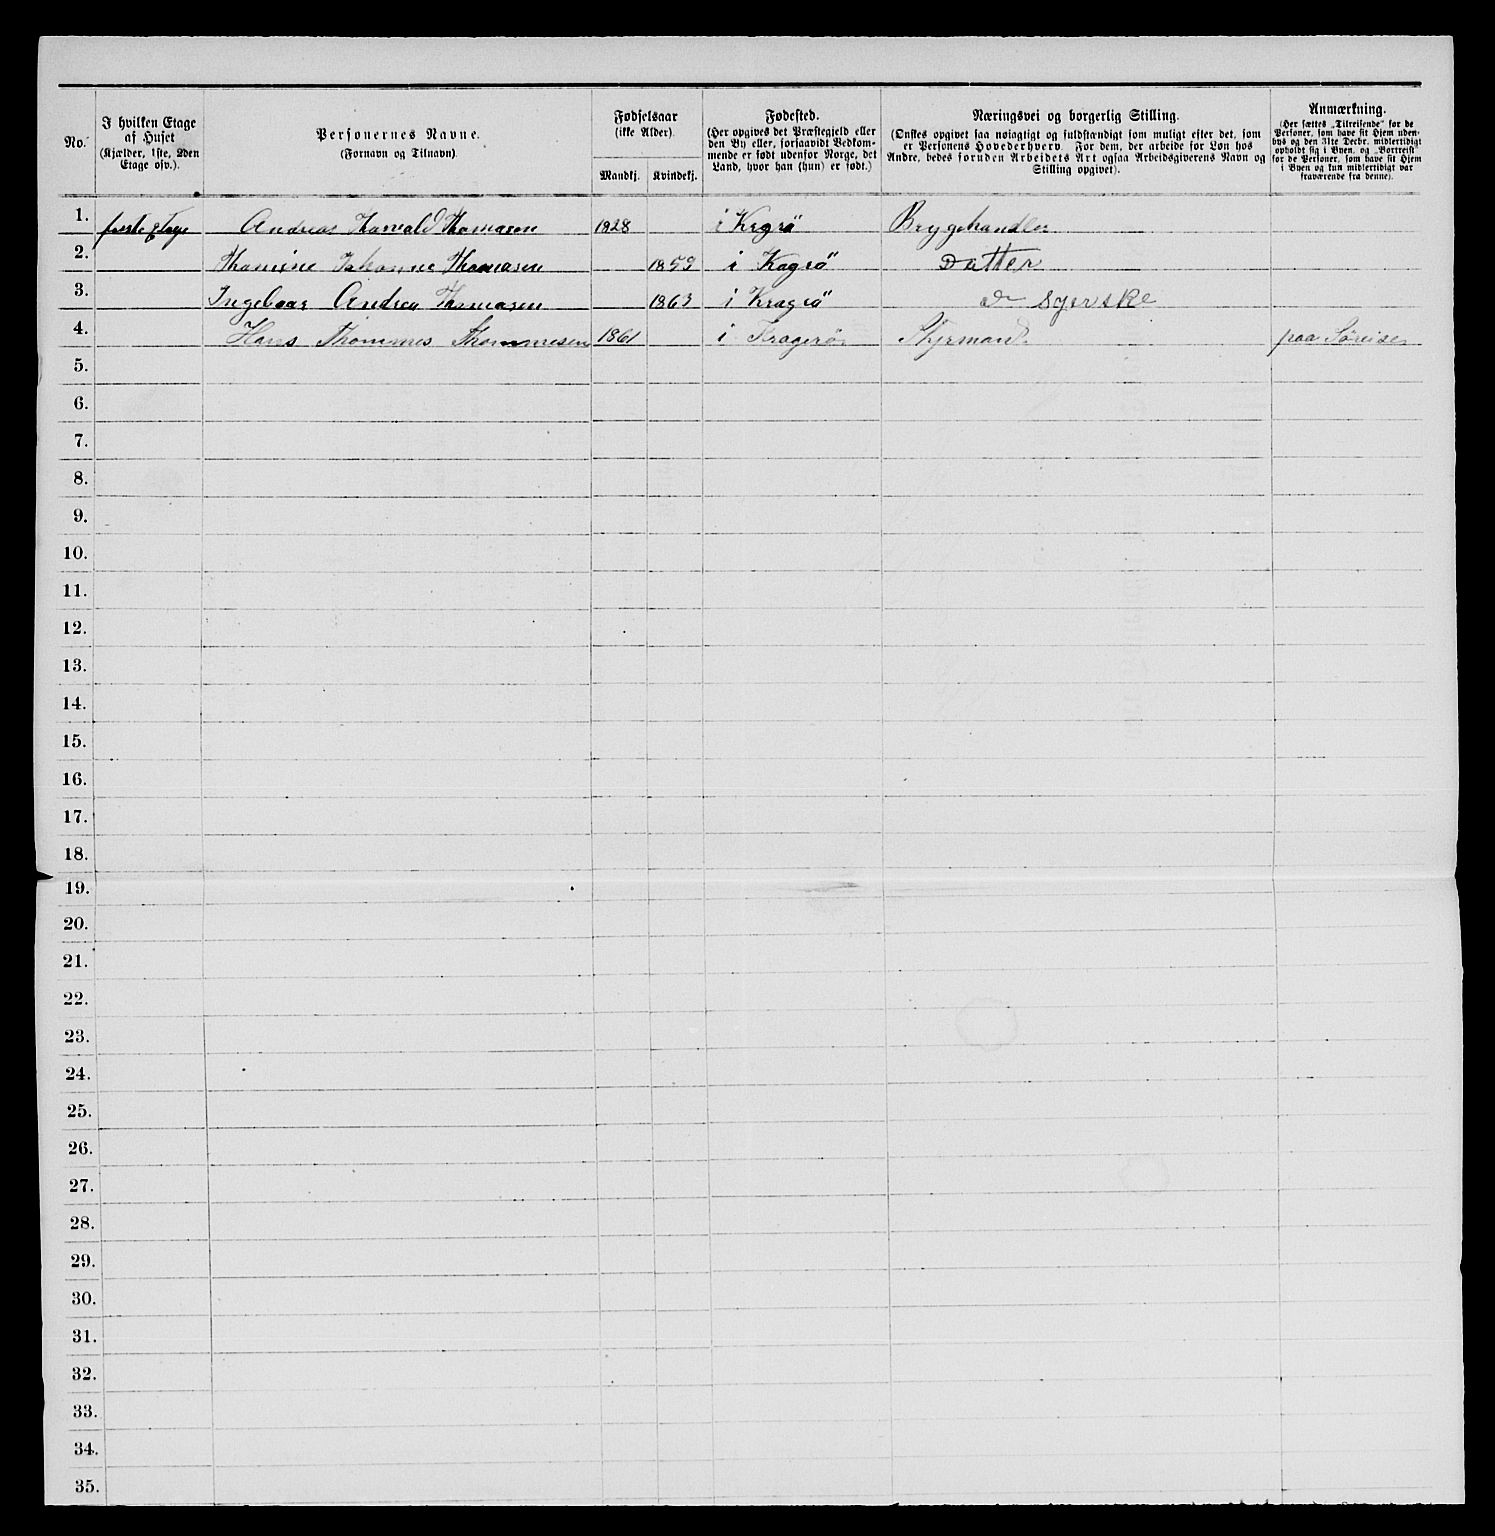 No.
I hvilken Etage
af Huset
(Kjælder, 1ste, 2den
Etage osv.).
Personernes Navne.
(Fornavn og Tilnavn).
Fødselsaar
(ikke Alder).
Mandkj. Kvindekj.
Fødested.
(Her opgives det Præstegjeld eller
den By eller, forsaavidt Vedkom-
mende er født udenfor Norge, det
Land, hvor han (hun) er født.)
Næringsvei og borgerlig Stilling.
(Ønskes opgivet saa nøiagtigt og fuldstændigt som muligt efter det, som
er Personens Hovederhverv. For dem, der arbeide for Løn hos
Andre, bedes foruden Arbeidets Art ogsaa Arbeidsgiverens Navn og
Stilling opgivet).
Anmærkning.
(Her sættes „Tilreisende“ for de
Personer, som have sit Hjem uden-
bys og den 31te Decbr. midlertidigt
opholdt sig i Byen, og „Bortreist“
for de Personer, som have sit Hjem
i Byen og kun midlertidigt var
fraværende fra denne).
1. første Etage Andreas Thorvald Thomasen 1828 i Kragrö
2. Johanne Thomasen 1859 i Kagrö Datter
3. Ingeboar Andrea Thomasen 1863 i Kragrö do Syerske
4. Hans Thommes Thommesen 1861 i Kragerö Styrmand paa Söreise
5.
6.
7.
8.
9.
10.
11.
12.
13.
14.
15.
16.
17.
18.
19.
20.
21.
22.
23.
24.
25.
26.
27.
28.
29.
30.
31.
32.
33.
34.
35.